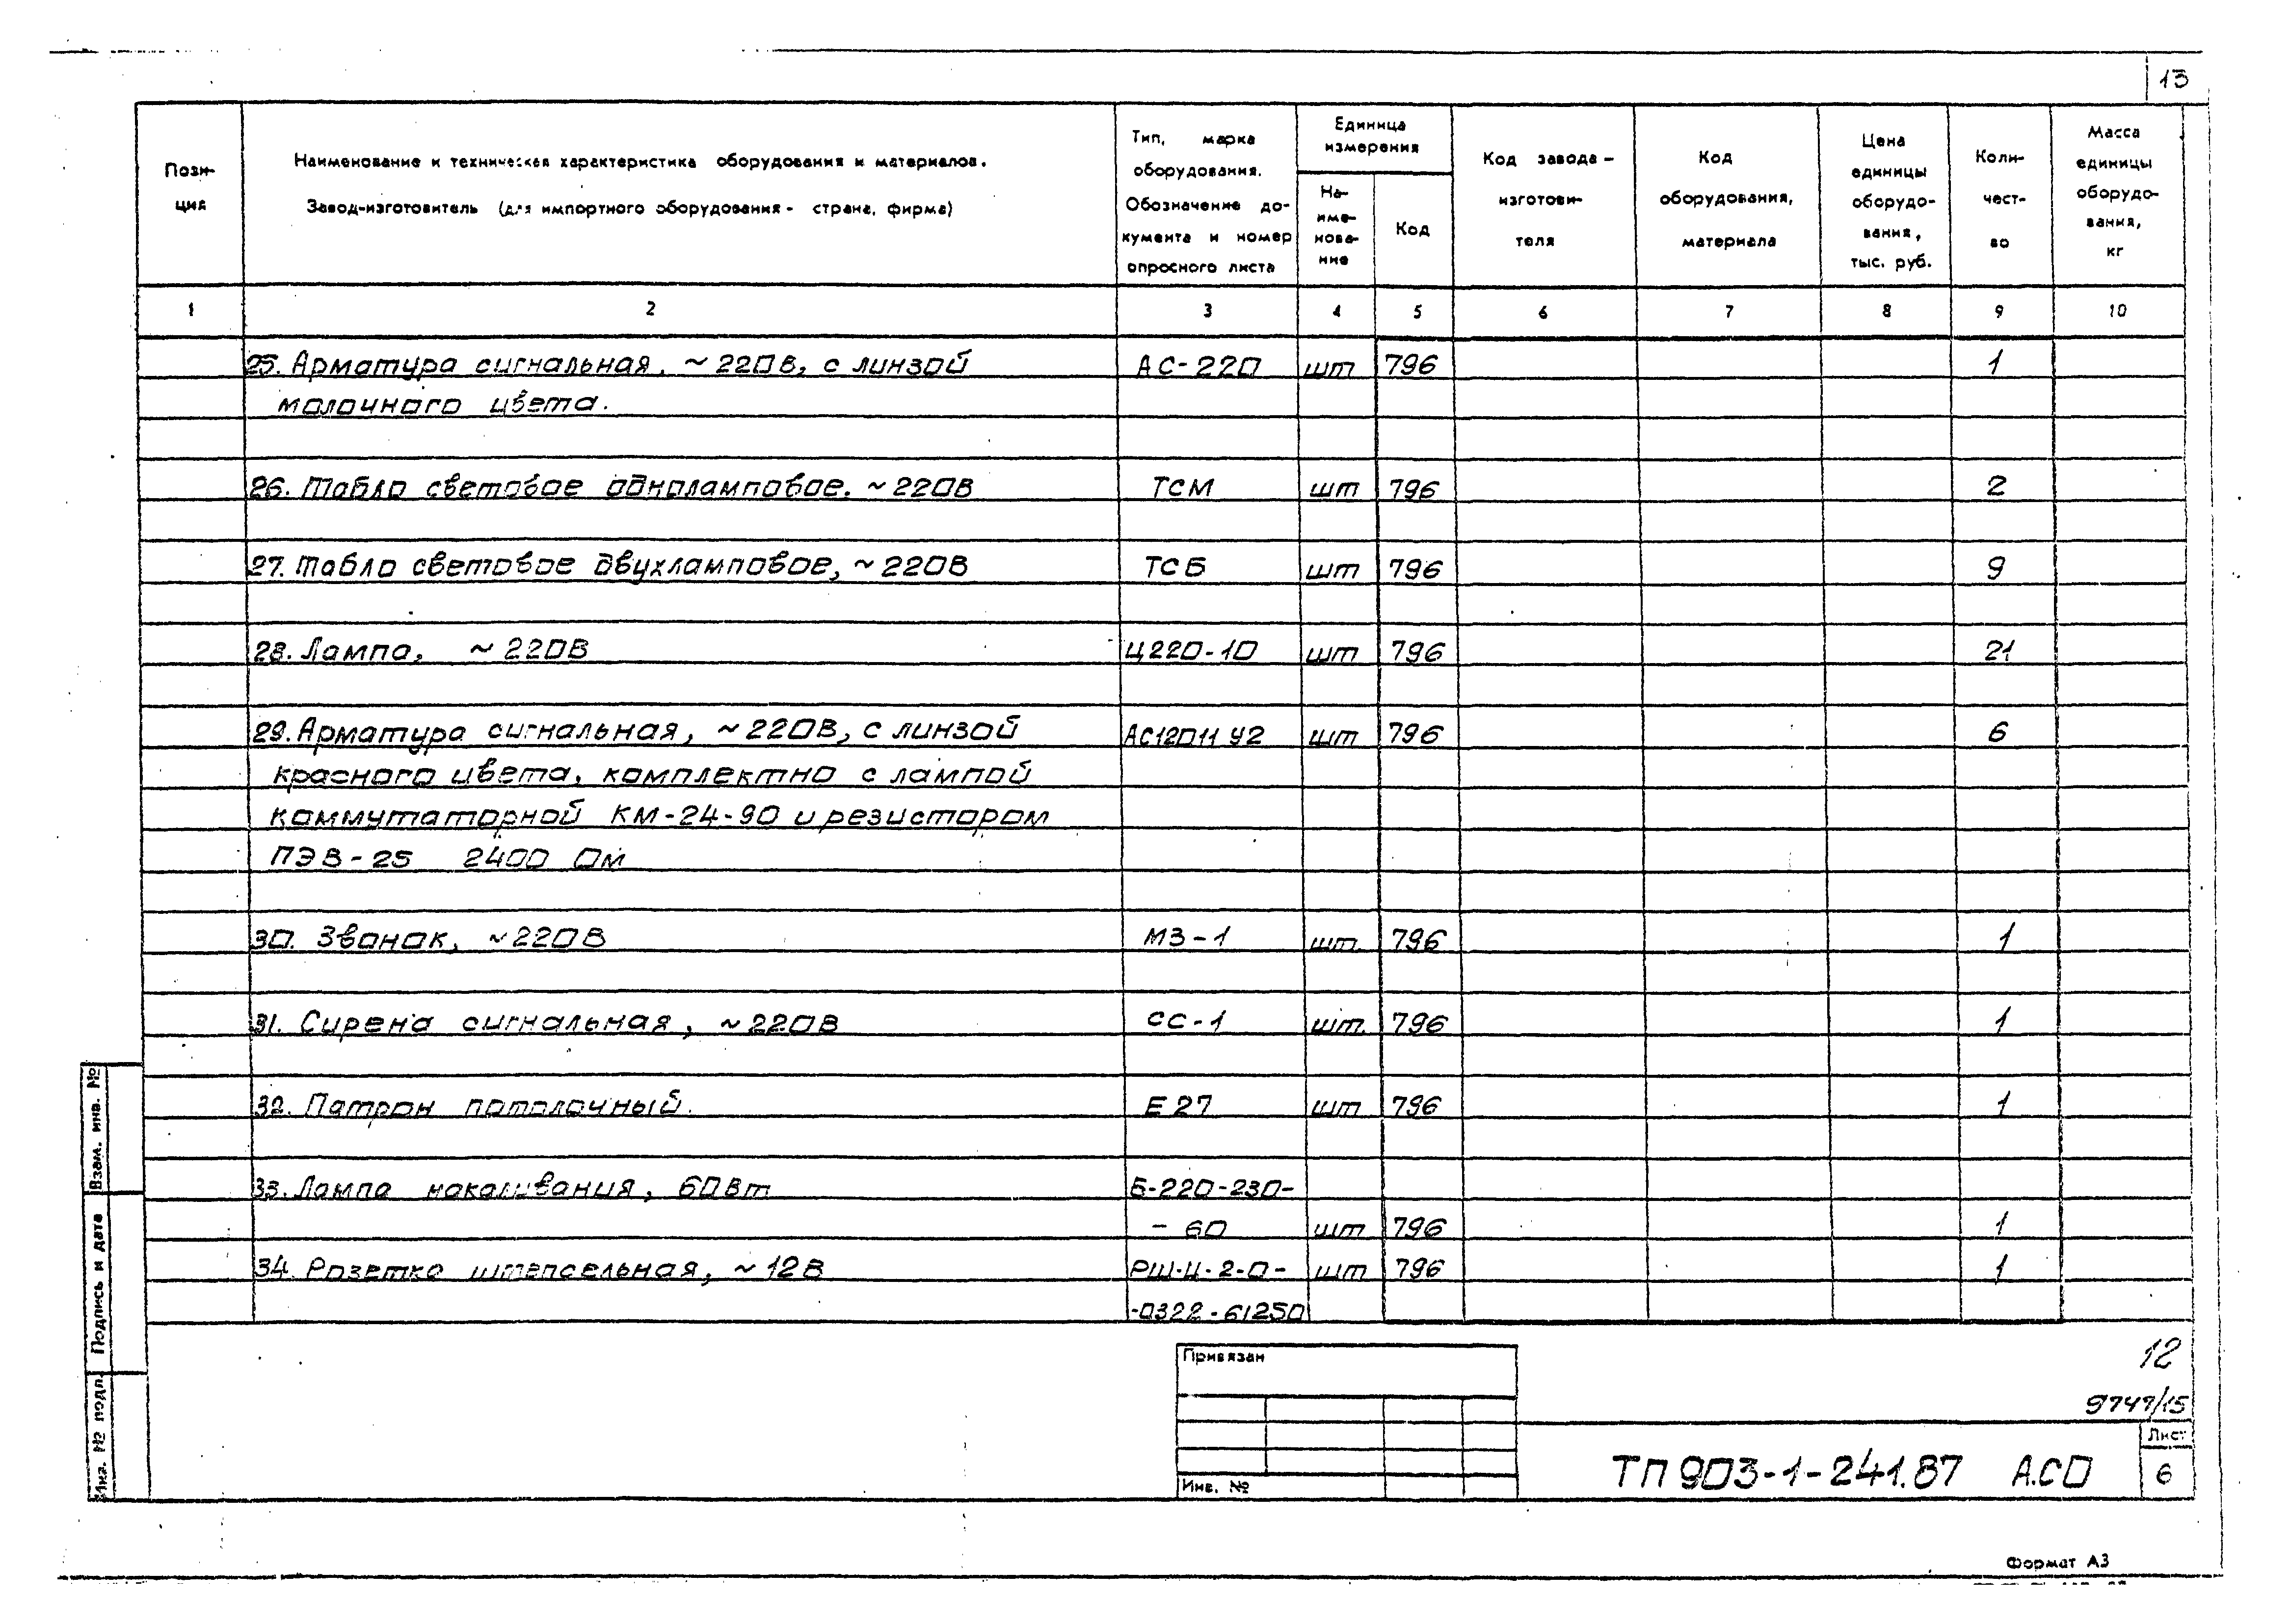 13
Пози-
ция
Наименование и техническая характеристика оборудования и материалов.
Завод-изготовитель (для импортного оборудования - страна, фирма)
Тип, марка
оборудования.
Обозначение до-
кумента и номер
опросного листа
Единица
измерения
На-
име-
нова-
ние
Код
Код завода -
изготови-
теля
Код
оборудования,
материала
Цена
единицы
оборудо-
вания,
тыс. руб.
Коли-
чест-
во
Масса
единицы
оборудо-
вания,
кг
1 2 3 4 5 6 7 8 9 10
25. Арматура сигнальная, ~220В, с линзой АС-220 шт 796 1
молочного цвета.
26. Табло световое одноламповое. ~220В ТСМ шт 796 2
27. Табло световое двухламповое, ~220В ТСБ шт 796 9
28. Лампа, ~220В Ц220-10 шт 796 21
29. Арматура сигнальная, ~220В, с линзой АС12011 У2 шт 796 6
красного цвета, комплектно с лампой
коммутаторной КМ-24-90 и резистором
ПЭВ-25 2400 Ом
30. Звонок, ~220В МЗ-1 шт. 796 1
31. Сирена сигнальная, ~220В СС-1 шт. 796 1
32. Патрон потолочный. Е27 шт 796 1
33. Лампа накаливания, 60Вт Б-220-230-
- 60 шт 796 1
34. Розетка штепсельная, ~12В РШ-Ц-2-0- шт 796 1
-0322-61250
Взам. инв. №
Подпись и дата
Инв. № подл.
Привязан
Инв. №
12
9747/15
ТП 903-1-241.87 А.СО
Лист
6
Формат А3